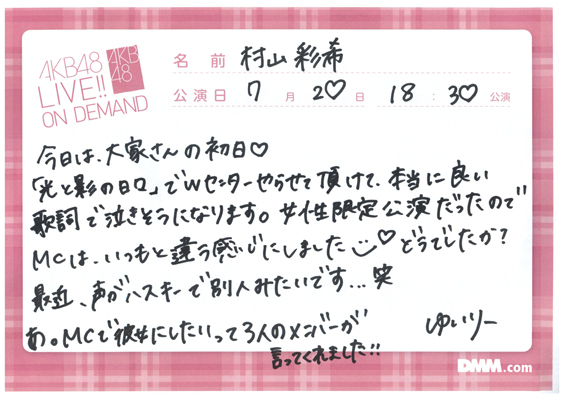 AKB48
LIVE!!
ON DEMAND
AKB
48
名前 村山彩希
公演日 7月20日 18:30公演
今日は、大家さんの初日♡
「光と影の日々」でWセンターやらせて頂けて、本当に良い
歌詞で泣きそうになります。女性限定公演だったので
MCは、いつもと違う感じにしました♡どうでしたか?
最近、声がハスキーで別人みたいです...笑
あ。MCで彼女にしたいって3人のメンバーが
言ってくれました!!
ゆいりー
DMM.com